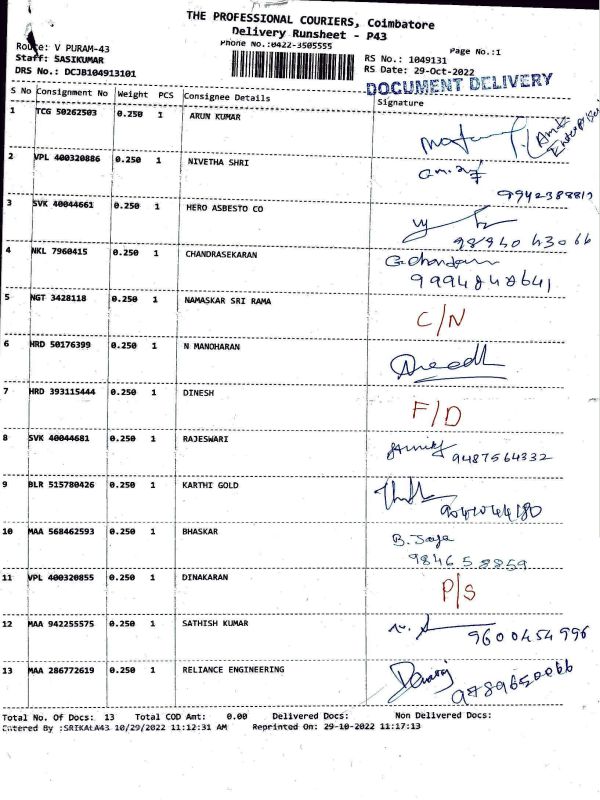 THE PROFESSIONAL COURIERS, Coimbatore
Delivery Runsheet - P43
Phone No.:0422-3505555
Page No.:1
Route: V PURAM-43
Staff: SASIKUMAR
DRS No.: DCJB104913101
RS No.: 1049131
RS Date: 29-Oct-2022
DOCUMENT DELIVERY
S No Consignment No Weight PCS Consignee Details Signature
1 TCG 50262503 0.250 1 ARUN KUMAR
2 VPL 400320886 0.250 1 NIVETHA SHRI
3 SVK 40044661 0.250 1 HERO ASBESTO CO
4 NKL 7960415 0.250 1 CHANDRASEKARAN
5 NGT 3428118 0.250 1 NAMASKAR SRI RAMA C/N
6 HRD 50176399 0.250 1 N MANOHARAN
7 HRD 393115444 0.250 1 DINESH F/D
8 SVK 40044681 0.250 1 RAJESWARI 9487564332
9 BLR 515780426 0.250 1 KARTHI GOLD
10 MAA 568462593 0.250 1 BHASKAR
11 VPL 400320855 0.250 1 DINAKARAN P/S
12 MAA 942255575 0.250 1 SATHISH KUMAR 9600454996
13 MAA 286772619 0.250 1 RELIANCE ENGINEERING 9789650066
Total No. Of Docs: 13 Total COD Amt: 0.00 Delivered Docs: Non Delivered Docs:
Entered By :SRIKALA43 10/29/2022 11:12:31 AM Reprinted On: 29-10-2022 11:17:13